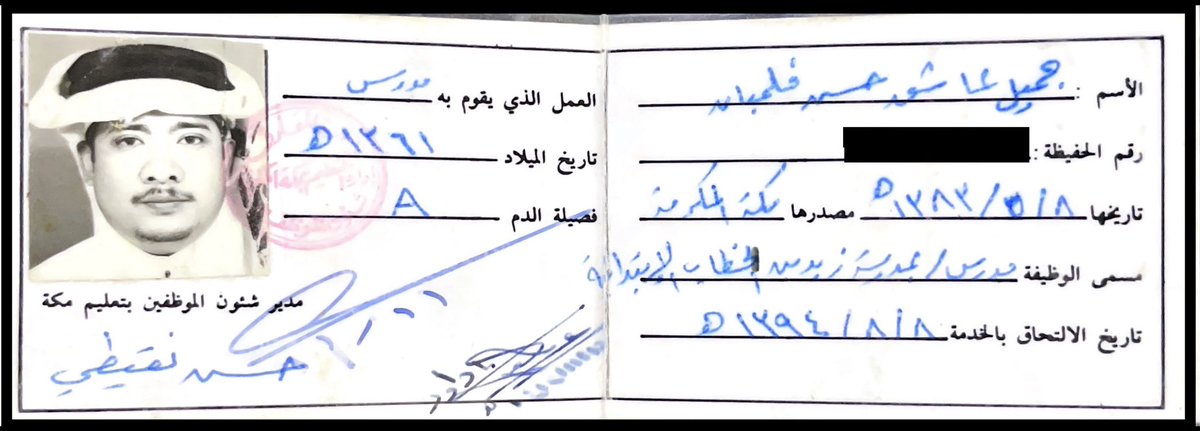 الأسم : جميل عاشق حسن فلمبان
رقم الحفيظة :
تاريخها ١٣٨٣/٥/٨ هـ مصدرها مكة المكرمة
مسمى الوظيفة مدرس / بمدرسة زيد بن الخطاب الإبتدائية
تاريخ الالتحاق بالخدمة ١٣٩٤/٨/٨ هـ
العمل الذي يقوم به مدرس
تاريخ الميلاد ١٣٦١ هـ
فصيلة الدم A
مدير شئون الموظفين بتعليم مكة
حسن نقيطي